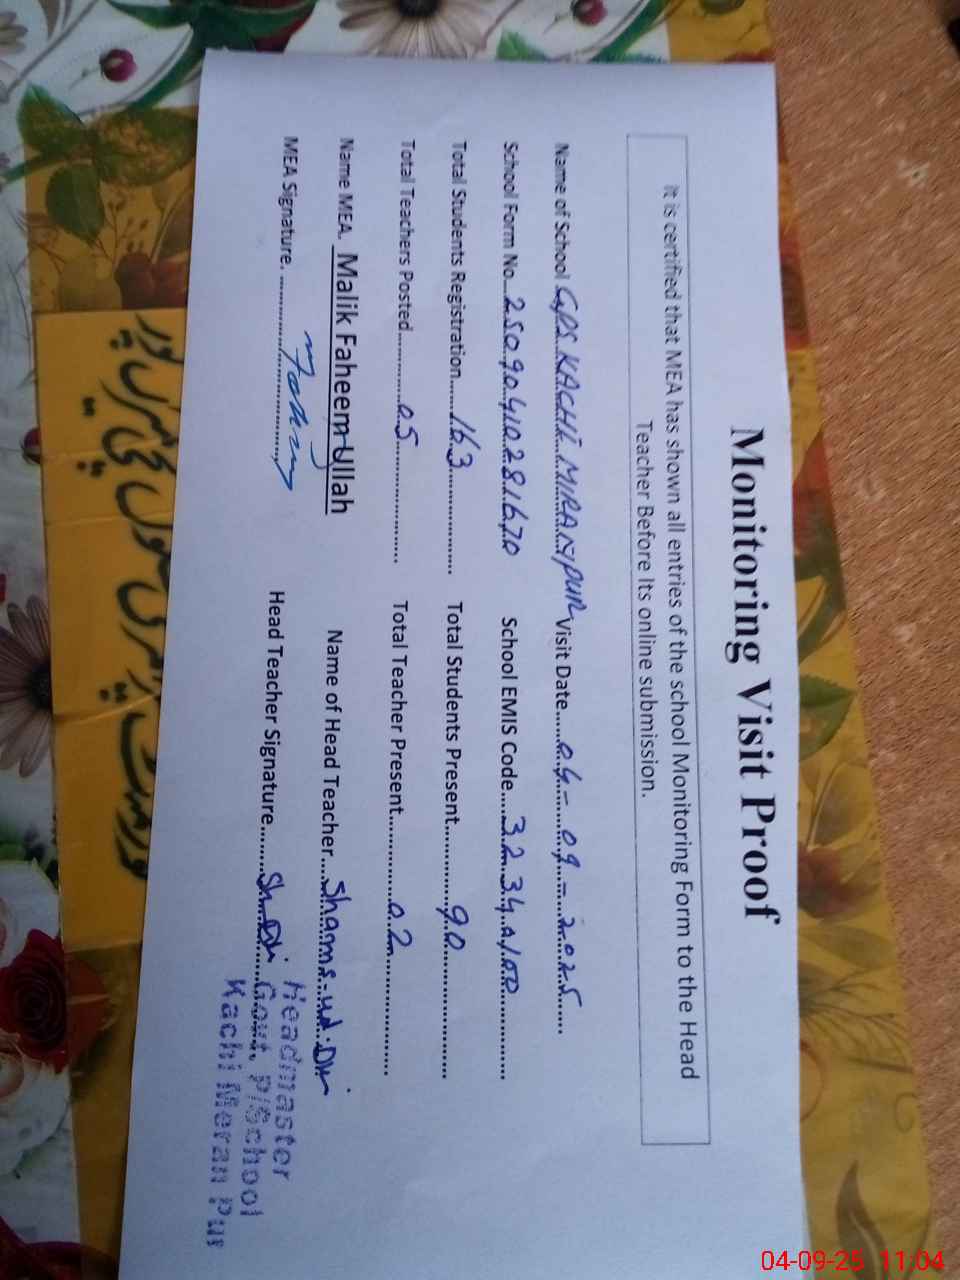 Monitoring Visit Proof
It is certified that MEA has shown all entries of the school Monitoring Form to the Head
Teacher Before its online submission.
Name of School GPS KACHI MIRANPUR Visit Date......04-09-2025....
School Form No...25090410281670 School EMIS Code...32340100............
Total Students Registration......163................ Total Students Present............90....................
Total Teachers Posted............05.................. Total Teacher Present..............02..................
Name MEA. Malik Faheem Ullah Name of Head Teacher...Shams-ud-Din
MEA Signature. .................................... Head Teacher Signature........
Headmaster
Govt. P/School
Kachi Meran Pur
04-09-25 11:04